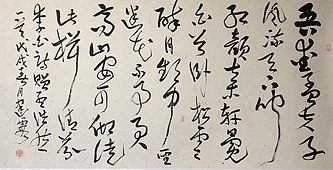 吾爱孟夫子
风流天下闻
红颜弃轩冕
白首卧松云
醉月频中圣
迷花不事君
高山安可仰徒
此揖清芬
李白诗赠孟浩然
戊戌
月